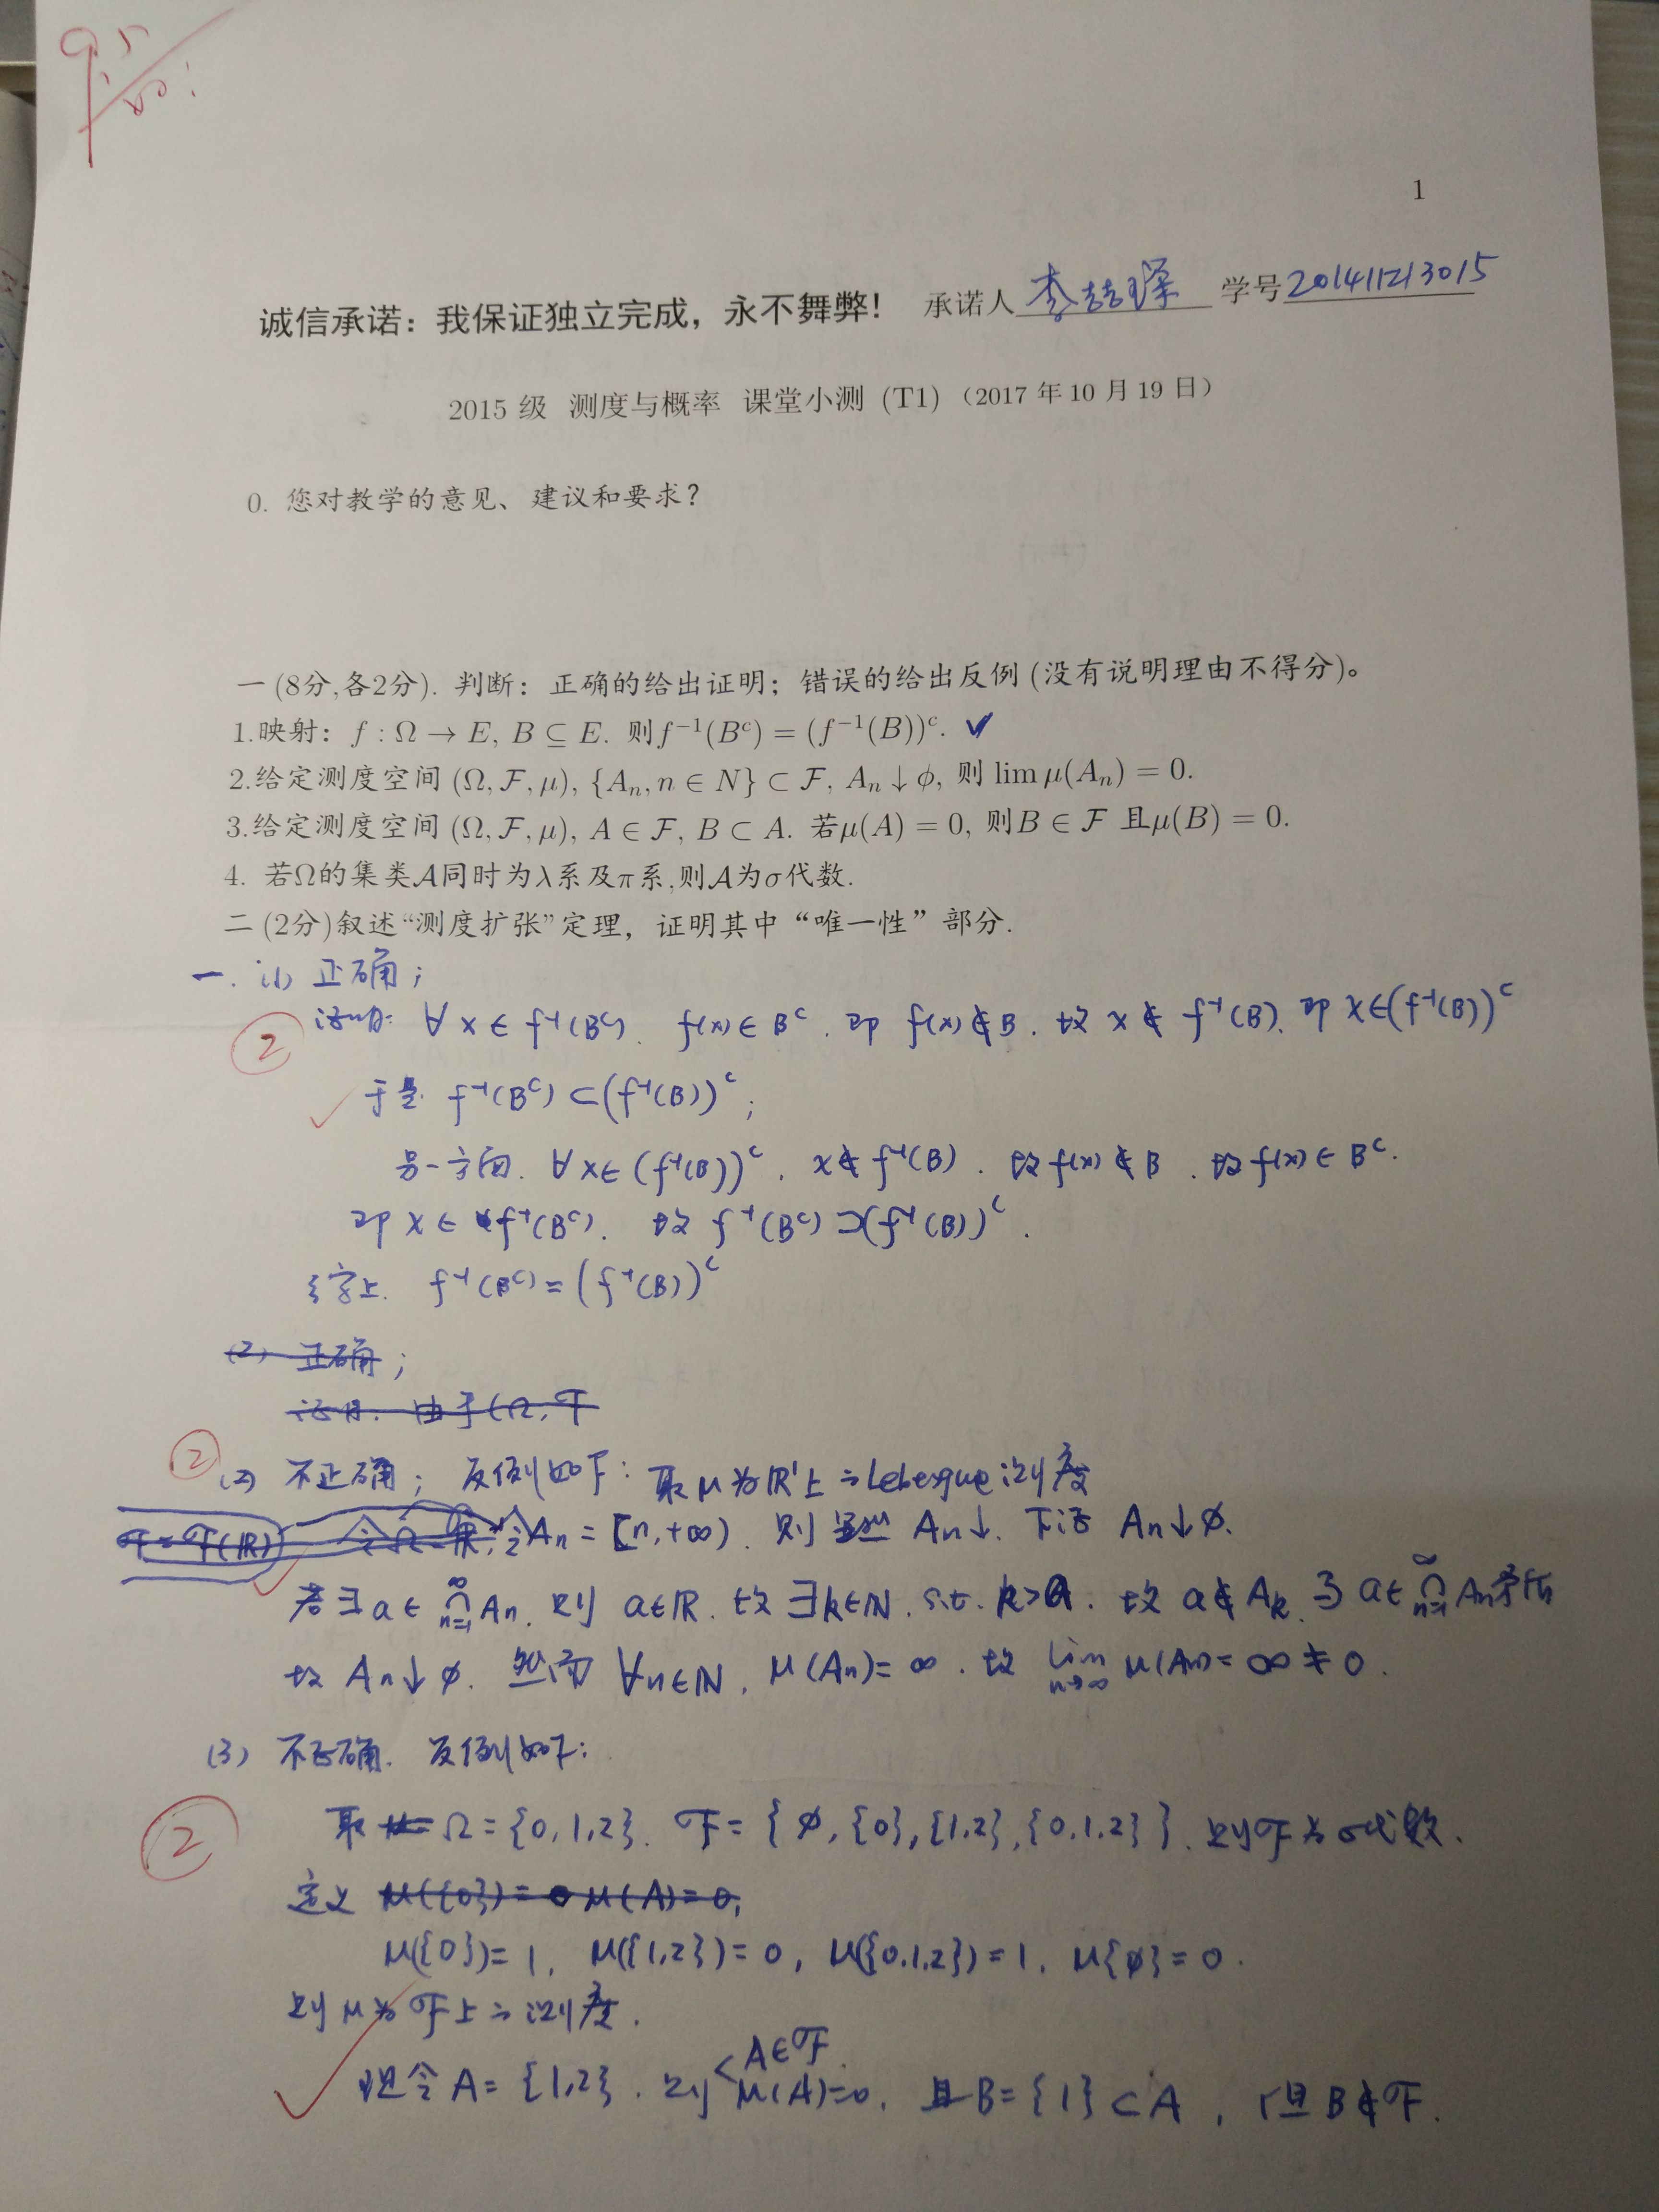 9.5
1
诚信承诺：我保证独立完成，永不舞弊！ 承诺人 李喆琛 学号 201411213015
2015 级 测度与概率 课堂小测 (T1)（2017 年 10 月 19 日）
0. 您对教学的意见、建议和要求？
一 (8分,各2分). 判断：正确的给出证明；错误的给出反例 (没有说明理由不得分)。
1.映射：f : Ω → E, B ⊆ E. 则f⁻¹(Bᶜ) = (f⁻¹(B))ᶜ. ✓
2.给定测度空间 (Ω, F, μ), {Aₙ, n ∈ N} ⊂ F, Aₙ ↓ ϕ, 则 lim μ(Aₙ) = 0.
3.给定测度空间 (Ω, F, μ), A ∈ F, B ⊂ A. 若μ(A) = 0, 则B ∈ F 且μ(B) = 0.
4. 若Ω的集类A同时为λ系及π系,则A为σ代数.
二 (2分)叙述“测度扩张”定理，证明其中“唯一性”部分.
一. (1) 正确；
② 证明: ∀ x ∈ f⁻¹(Bᶜ). f(x) ∈ Bᶜ. 即 f(x) ∉ B. 故 x ∉ f⁻¹(B). 即 x∈(f⁻¹(B))ᶜ
于是 f⁻¹(Bᶜ) ⊂ (f⁻¹(B))ᶜ;
另一方面. ∀ x∈ (f⁻¹(B))ᶜ, x ∉ f⁻¹(B). 故f(x) ∉ B. 故f(x) ∈ Bᶜ.
即 x ∈ f⁻¹(Bᶜ). 故 f⁻¹(Bᶜ) ⊃ (f⁻¹(B))ᶜ.
综上. f⁻¹(Bᶜ) = (f⁻¹(B))ᶜ
(2) 正确；
证明. 由于(Ω, F
② (2) 不正确；反例如下：取 μ 为 ℝ¹上之Lebesgue测度
F = F(ℝ) 令 Ω = ℝ, 令 Aₙ = [n, +∞). 则显然 Aₙ↓. 下证 Aₙ↓∅.
若∃ a ∈ ⋂ₙ₌₁^∞ Aₙ. 则 a∈ℝ. 故 ∃k∈ℕ. s.t. k>a. 故 a∉Aₖ. 与 a∈ ⋂ₙ₌₁^∞ Aₙ矛盾
故 Aₙ↓∅. 然而 ∀n∈ℕ, μ(Aₙ)=∞. 故 lim n→∞ μ(Aₙ)=∞≠0.
(3) 不正确. 反例如下：
② 取 Ω={0,1,2}. F={∅,{0},{1,2},{0,1,2}}. 则F为σ代数.
定义 μ({0})=0 μ(A)=0,
μ({0})=1, μ({1,2})=0, μ({0,1,2})=1, μ{∅}=0.
则 μ为 F上之测度.
A∈F.
但令 A={1,2}. 则 μ(A)=0. 且B={1}⊂A, 但B∉F.